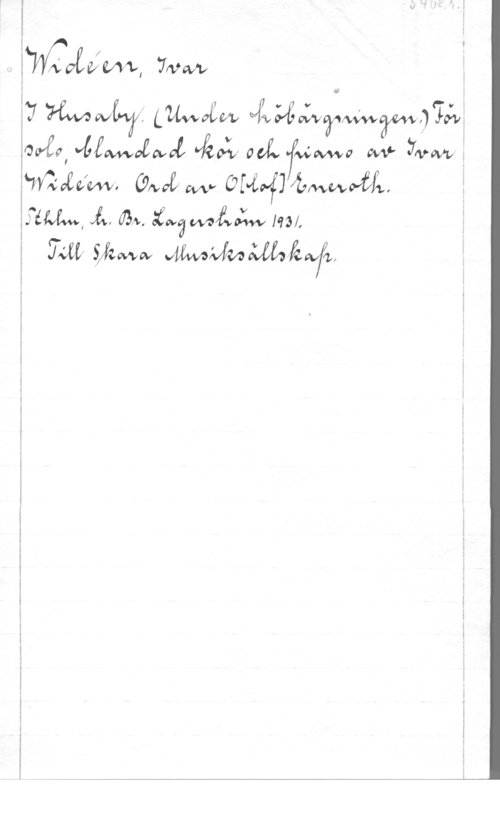 Widéen, Ivar
I Husaby. (Under höbärgningen.) För
solo, blandad kör och piano av Ivar
Widéen. Ord av O[lof] Eneroth.
Sthlm, tr. Br. Lagerström 1931.
Till Skara Musiksällskap.